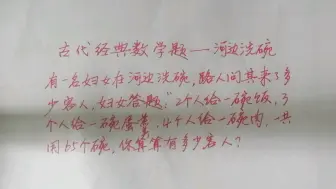 古代经典数学题——河边洗碗
有一名妇女在河边洗碗,路人问其来了多
少客人,妇女答题:"2个人给一碗饭,3
个人给一碗蛋羹,4个人给一碗肉,一共
用65个碗,你算算有多少客人?